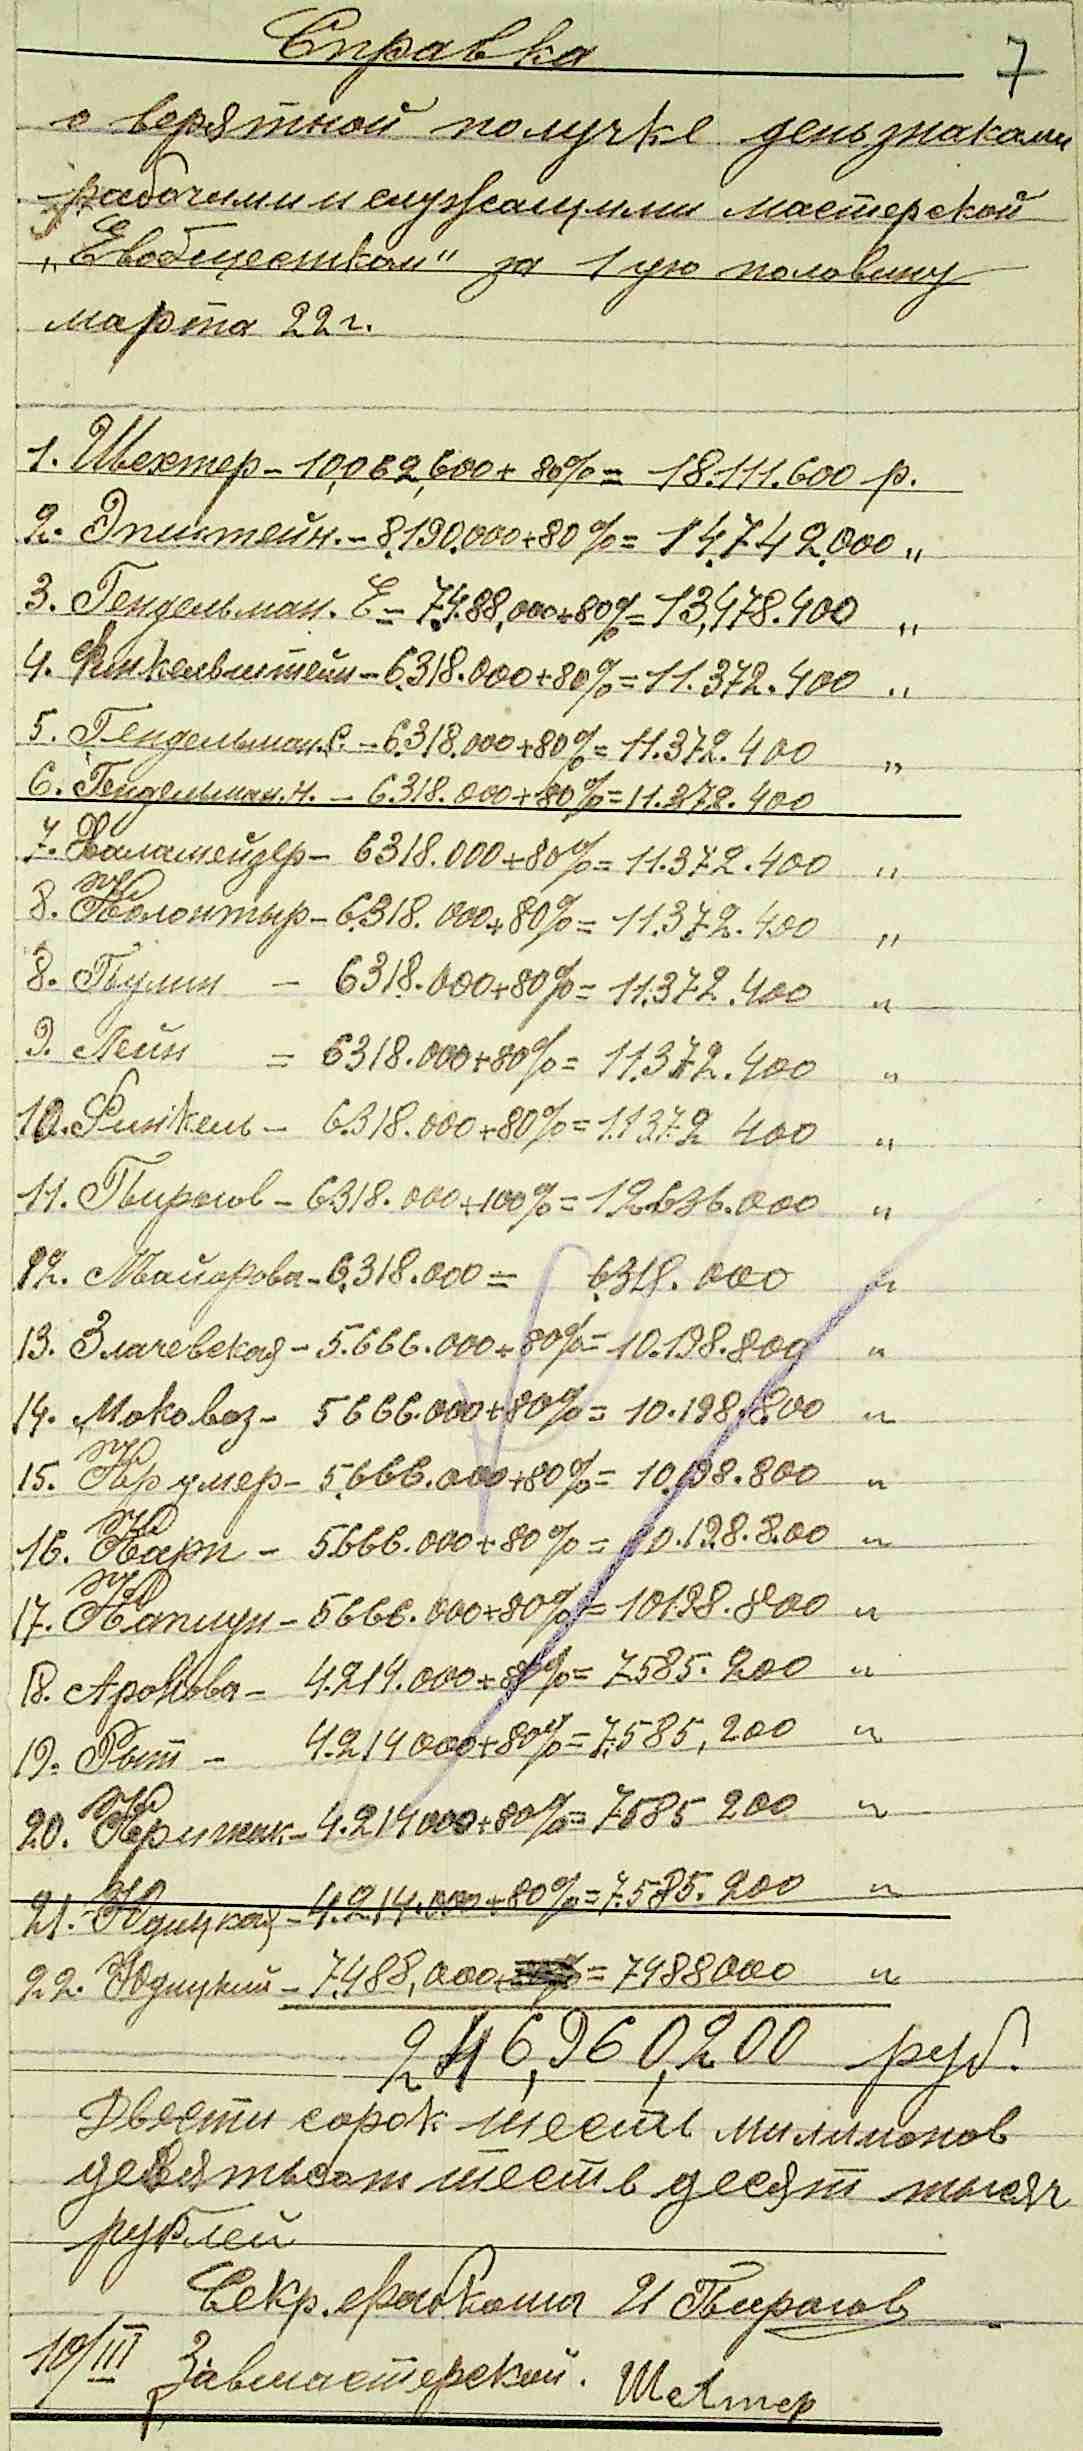 Справка
7
о верятной получке деньзнаками
рабочими и служащими мастерской
„Евобщесткам" за 1 ую половину
марта 22 г.
1. Шехтер - 10,062,600 + 80% = 18.111.600 р.
2. Эпштейн. - 8.190.000 + 80% = 14.742.000 „
3. Гендельман. Е - 7.488,000 + 80% = 13,478.400 „
4. Финкельштейн - 6.318.000 + 80% = 11.372.400 „
5. Гендельман.С. - 6.318.000 + 80% = 11.372.400 „
6. Гендельман.Н. - 6.318.000 + 80% = 11.372.400
7. - 6318.000 + 80% = 11.372.400 „
8. Колонтыр - 6.318.000 + 80% = 11.372.400 „
8. Пулин - 6318.000 + 80% = 11.372.400 „
9. Лейн = 6318.000 + 80% = 11.372.400 „
10. Финкель - 6.318.000 + 80% = 11.372 400 „
11. Пирогов - 6318.000 + 100% = 12.636.000 „
12. Майорова - 6.318.000 = 6.318.000 „
13. Злачевская - 5.666.000 + 80% = 10.198.800 „
14. Моковоз - 5666.000 + 80% = 10.198.800 „
15. Крумер - 5.666.000 + 80% = 10.198.800 „
16. Карп - 5.666.000 + 80% = 10.198.800 „
17. Каплун - 5666.000 + 80% = 10198.800 „
18. Аронова - 4.214.000 + 80% = 7.585.200 „
19. Рыт - 4.214000 + 80% = 7.585,200 „
20. - 4.214000 + 80% = 7585 200 „
21. Юдицкая - 4.214.000 + 80% = 7.585.200 „
22. Юдицкий - 7.488,000 = 7488000 „
246,960,200 руб.
Двести сорок шесть миллионов
девятьсот шесть десят тысяч
рублей
Секр. рабкома И Пирогов
10/III Завмастерской. Шехтер